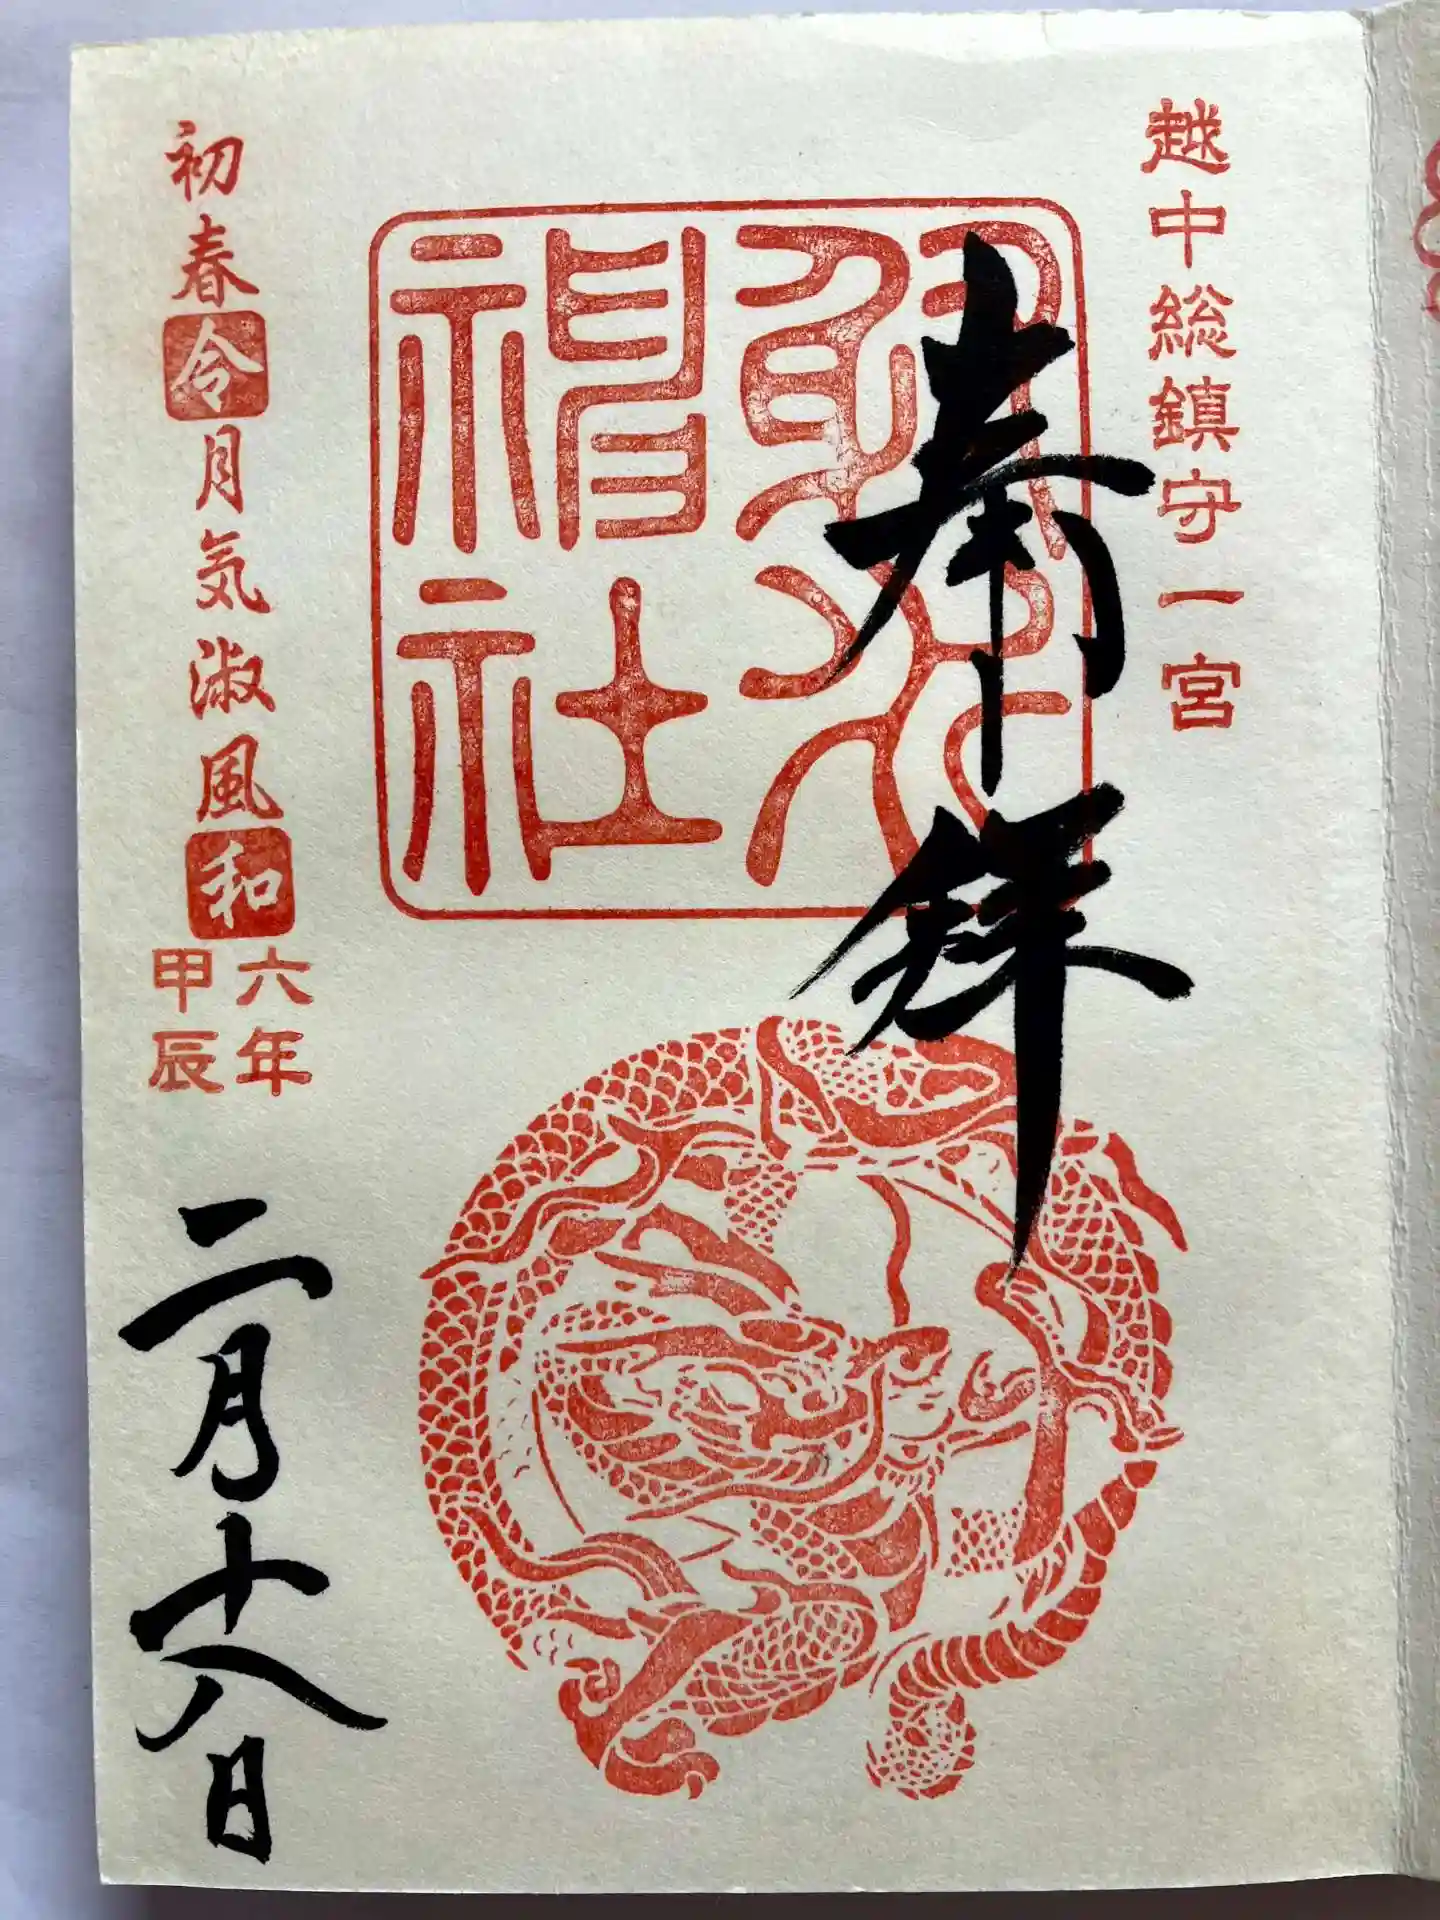 越中総鎮守一宮
奉拝
射水
神社
初春令月気淑風和
六年
甲辰
二月十八日